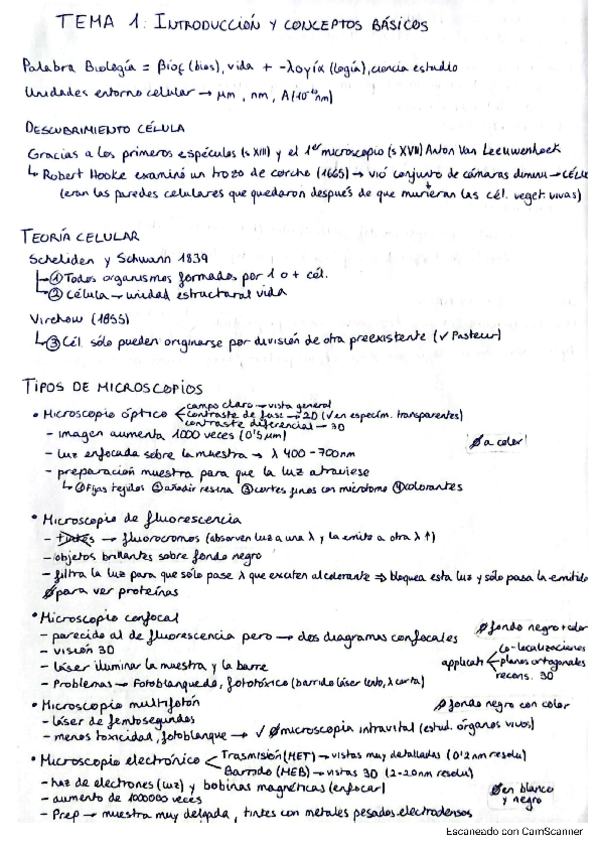 TEMA 1: INTRODUCCIÓN Y CONCEPTOS BÁSICOS
Palabra Biología = βιος (bios), vida + -λογία (logía), ciencia estudio
Unidades entorno celular → μm, nm, A (10⁻¹⁰m)
DESCUBRIMIENTO CÉLULA
Gracias a los primeros espéculos (s XIII) y el 1er microscopio (s XVII) Anton Van Leeuwenhoek
↳ Robert Hooke examinó un trozo de corcho (1665) → vió conjunto de cámaras diminu → CÉLU
(eran las paredes celulares que quedaron después de que murieran las cél. veget. vivas)
TEORÍA CELULAR
Scheliden y Schwann 1839
① Todos organismos formados por 1 o + cél.
② Célula → unidad estructural vida
Virchow (1855)
↳ ③ Cél. sólo pueden originarse por división de otra preexistente (✓ Pasteur)
TIPOS DE MICROSCOPIOS
campo claro → vista general
• Microscopio óptico contraste de fase → 2D (✓ en especím. transparentes)
contraste diferencial → 3D
- imagen aumenta 1000 veces (0'5 μm)
a color!
- luz enfocada sobre la muestra → λ 400-700nm
- preparación muestra para que la luz atraviese
↳ ① Fijas tejidos ② añadir resina ③ cortes finos con micrótomo ④ colorantes
• Microscopio de fluorescencia
- → fluorocromos (absorven luz a una λ y la emite a otra λ ↑)
- objetos brillantes sobre fondo negro
- filtra la luz para que sólo pase λ que exciten al colorante ⇒ bloquea esta luz y sólo pasa la emitida
para ver proteínas
• Microscopio confocal
fondo negro + color
- parecido al de fluorescencia pero → dos diagramas confocales
- visión 3D
co-localizaciones
- láser iluminar la muestra y la barre
applicati planos ortogonales
recons. 3D
- Problemas → Fotoblanquedo, fototóxico (barrido láser lento, λ corta)
• Microscopio multifotón
fondo negro con color
- láser de femtosegundos
- menos toxicidad, fotoblanque → ✓ microscopia intravital (estud. órganos vivos)
• Microscopio electrónico Trasmisión (MET) → vistas muy detalladas (0'2 nm resolu)
Barrido (MEB) → vistas 3D (2-20nm resolu)
- haz de electrones (luz) y bobinas magnéticas (enfocar)
- aumento de 1000000 veces
en blanco y negro
- Prep → muestra muy delgada, tintes con metales pesados electrodensos
Escaneado con CamScanner